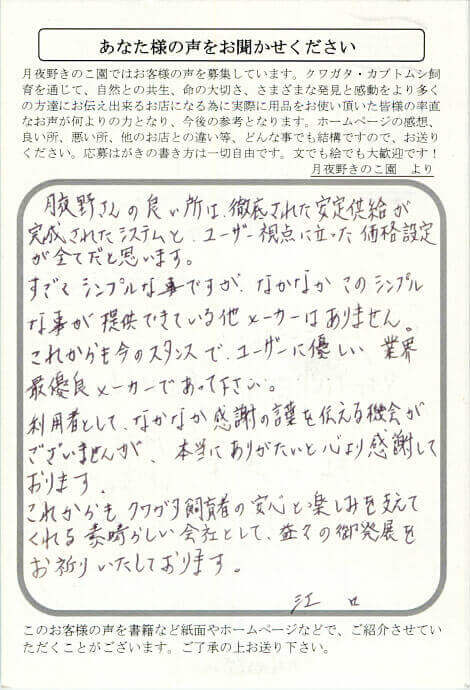 あなた様の声をお聞かせください
月夜野きのこ園ではお客様の声を募集しています。クワガタ・カブトムシ飼
育を通じて、自然との共生、命の大切さ、さまざまな発見と感動をより多く
の方達にお伝え出来るお店になる為に実際に用品をお使い頂いた皆様の率直
なお声が何よりの力となり、今後の参考となります。ホームページの感想、
良い所、悪い所、他のお店との違い等、どんな事でも結構ですので、お送り
ください。応募はがきの書き方は一切自由です。文でも絵でも大歓迎です！
月夜野きのこ園　より
月夜野さんの良い所は、徹底された安定供給が
完成されたシステムと、ユーザー視点に立った価格設定
が全てだと思います。
すごくシンプルな事ですが、なかなかこのシンプル
な事が提供できている他メーカーはありません。
これからも今のスタンスで、ユーザーに優しい業界
最優良メーカーであって下さい。
利用者として、なかなか感謝の言葉を伝える機会が
ございませんが、本当にありがたいと心より感謝して
おります。
これからもクワガタ飼育者の安心と楽しみを支えて
くれる素晴らしい会社として、益々の御発展を
お祈りいたしております。
江口
このお客様の声を書籍など紙面やホームページなどで、ご紹介させてい
ただくことがございます。ご了承の上お送り下さい。